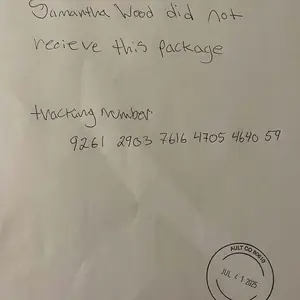 Samantha Wood did not
recieve this package
tracking number
9261 2903 7616 4705 4640 59
AULT CO 80610
JUL 2025